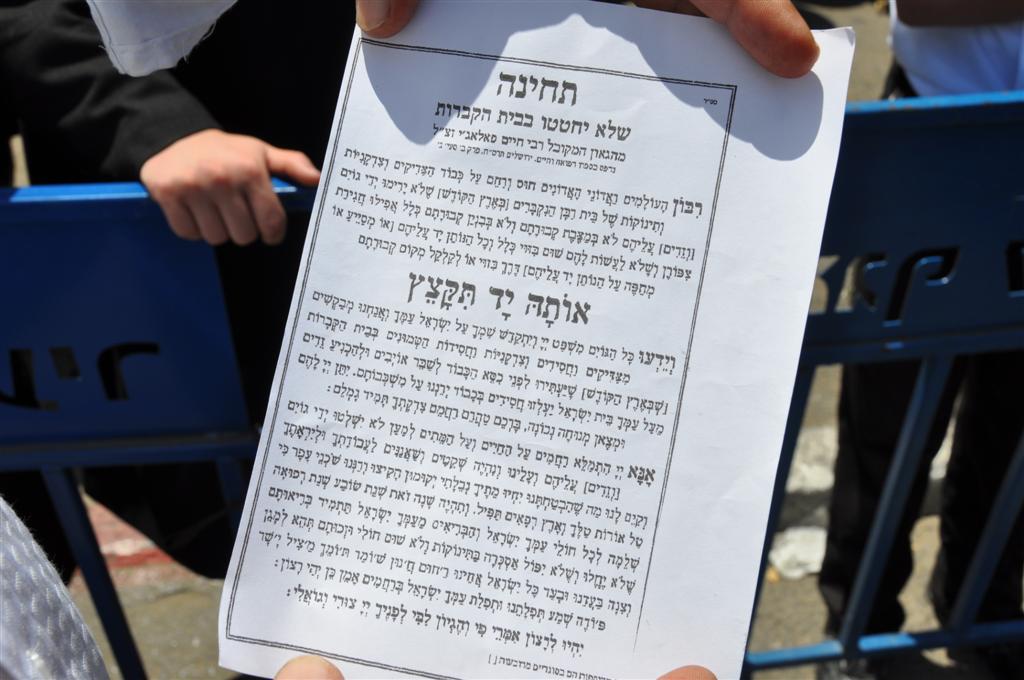 בס״ד
תחינה
שלא יחטטו בבית הקברות
מהגאון המקובל רבי חיים פאלאג׳י זצ״ל
נדפס בספרו רפואה וחיים, ירושלים תרס״ח, פרק ב׳ סעי׳ ג׳
רִבּוֹן הָעוֹלָמִים הָאֲדוֹנֵי הָאֲדוֹנִים חוּס וְרַחֵם עַל כְּבוֹד הַצַּדִּיקִים וְצִדְקָנִיּוֹת
וְתִינוֹקוֹת שֶׁל בֵּית רַבָּן הַנִּקְבָּרִים [בְּאֶרֶץ הַקּוֹדֶשׁ] שֶׁלֹּא יָרִימוּ יְדֵי גוֹיִם
[וְזֵדִים] עֲלֵיהֶם לֹא בְּמַצֶּבֶת קְבוּרָתָם וְלֹא בְּבִנְיַן קְבוּרָתָם כְּלָל אֲפִילוּ חֲגִירַת
צִפּוֹרֶן וְשֶׁלֹּא לַעֲשׂוֹת לָהֶם שׁוּם בִּזּוּי כְּלָל וְכָל הַנּוֹתֵן יָד עֲלֵיהֶם [אוֹ מְסַיֵּיעַ אוֹ
מְחַפֶּה עַל הַנּוֹתֵן יָד עֲלֵיהֶם] דֶּרֶךְ בִּזּוּי אוֹ לְקַלְקֵל מְקוֹם קְבוּרָתָם
אוֹתָהּ יָד תִּקָּצֵץ
וְיֵדְעוּ כָּל הַגּוֹיִם מִשְׁפַּט יְיָ וְיִתְקַדֵּשׁ שִׁמְךָ עַל יִשְׂרָאֵל עַמֶּךָ וַאֲנַחְנוּ מְבַקְשִׁים
מִצַּדִּיקִים וַחֲסִידִים וְצִדְקָנִיּוֹת וַחֲסִידוֹת הַטְּמוּנִים בְּבֵית הַקְּבָרוֹת
[שֶׁבְּאֶרֶץ הַקּוֹדֶשׁ] שֶׁיַּעְתִּירוּ לִפְנֵי כִּסֵּא הַכָּבוֹד לְשַׁבֵּר אוֹיְבִים וּלְהַכְנִיעַ זֵדִים
מֵעַל עַמְּךָ בֵּית יִשְׂרָאֵל יַעְלְזוּ חֲסִידִים בְּכָבוֹד יְרַנְּנוּ עַל מִשְׁכְּבוֹתָם. יִתֵּן יְיָ לָהֶם
וּמִצְאָן מְנוּחָה נְכוֹנָה, בָּרְכֵם טַהֲרֵם רַחֲמֵם צִדְקָתְךָ תָּמִיד גָּמְלֵם׃
אָנָּא יְיָ הִתְמַלֵּא רַחֲמִים עַל הַחַיִּים וְעַל הַמֵּתִים לְמַעַן לֹא יִשְׁלְטוּ יְדֵי גוֹיִם
[וְזֵדִים] עֲלֵיהֶם וְעָלֵינוּ וְנִהְיֶה שְׁקֵטִים וְשַׁאֲנַנִּים לַעֲבוֹדָתְךָ וּלְיִרְאָתֶךָ
וְקַיֵּם לָנוּ מַה שֶּׁהִבְטַחְתָּנוּ יִחְיוּ מֵתֶיךָ נְבֵלָתִי יְקוּמוּן הָקִיצוּ וְרַנְּנוּ שׁוֹכְנֵי עָפָר כִּי
טַל אוֹרוֹת טַלֶּךָ וָאָרֶץ רְפָאִים תַּפִּיל. וְתִהְיֶה שָׁנָה זֹאת שְׁנַת שׂוֹבַע שְׁנַת רְפוּאָה
שְׁלֵמָה לְכָל חוֹלֵי עַמְּךָ יִשְׂרָאֵל וְהַבְּרִיאִים מֵעַמְּךָ יִשְׂרָאֵל תַּתְמִיד בְּרִיאוּתָם
שֶׁלֹּא יֶחֱלוּ וְשֶׁלֹּא יִפּוֹל אַסְכָּרָה בַּתִּינוֹקוֹת וְלֹא שׁוּם חוֹלִי וּזְכוּתָם תְּהֵא לְמָגֵן
וְצִנָּה בַּעֲדֵנוּ וּבְעַד כָּל יִשְׂרָאֵל אַחֵינוּ רַ׳חוּם חַ׳נּוּן שׁ׳וֹמֵר תּ׳וֹמֵךְ מַ׳צִּיל יָ׳שָׁר
פּ׳וֹדֶה שְׁמַע תְּפִלָּתֵנוּ וּתְפִלַּת עַמְּךָ יִשְׂרָאֵל בְּרַחֲמִים אָמֵן כֵּן יְהִי רָצוֹן׃
יִהְיוּ לְרָצוֹן אִמְרֵי פִי וְהֶגְיוֹן לִבִּי לְפָנֶיךָ יְיָ צוּרִי וְגוֹאֲלִי׃
הם בסוגריים מרובעות [ ]